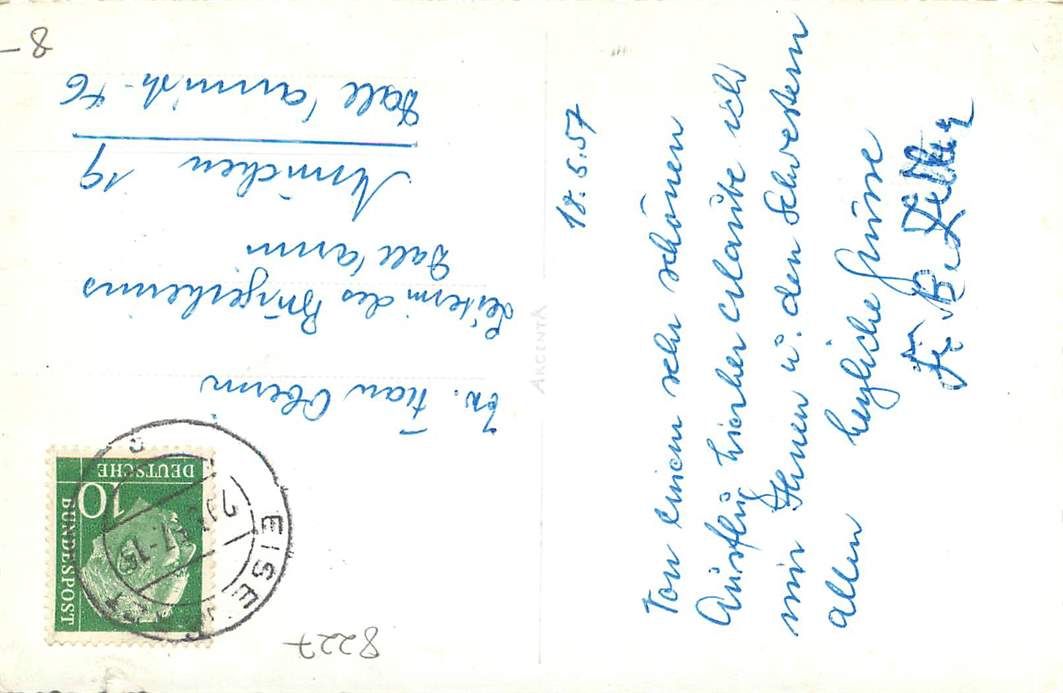 18.5.57
Von einem sehr schönen
Ausflug hierher erlaube ich
mir Ihnen u. den Schwestern
allen herzliche Grüsse
Fr. B.
Frau Oberin
Leiterin des Bürgerheims
Dall'armi
München 19
Dall'armistr. 46
DEUTSCHE
BUNDESPOST
10
ARGENTA
8227
8-